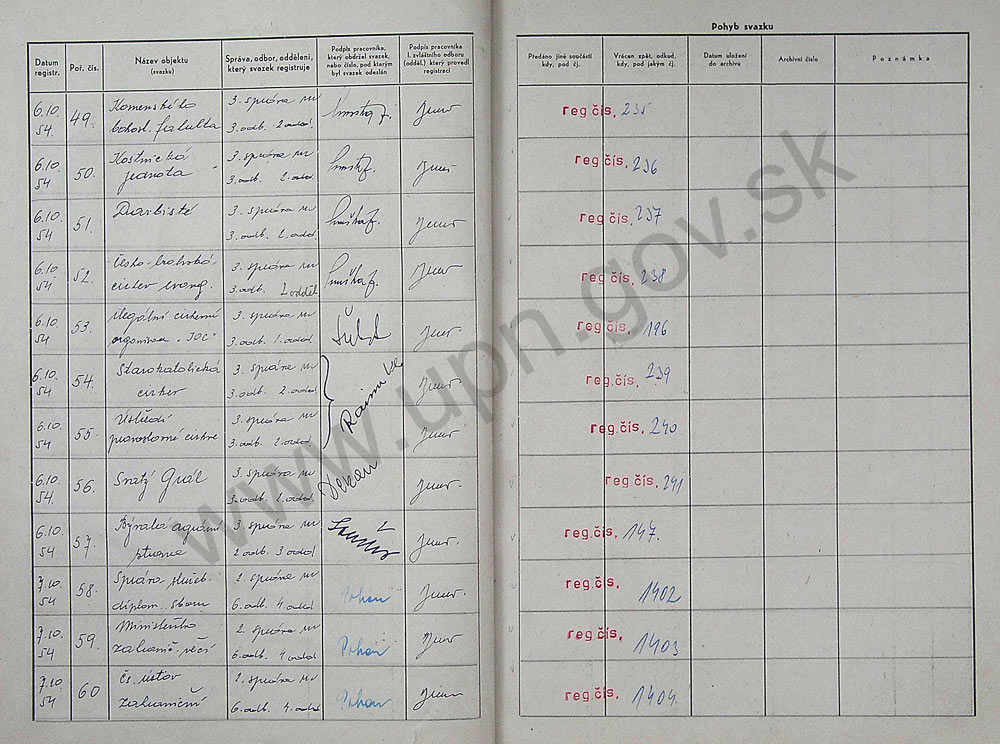 Pohyb svazku
Datum registr.
Poř. čís.
Název objektu (svazku)
Správa, odbor, oddělení, který svazek registruje
Podpis pracovníka, který obdržel svazek, nebo číslo, pod kterým byl svazek odeslán
Podpis pracovníka I. zvláštního odboru (odděl.) který provedl registraci
Předáno jiné součásti kdy, pod čj.
Vrácen zpět, odkud, kdy, pod jakým čj.
Datum uložení do archivu
Archivní číslo
Poznámka
6.10. 54 49. Komenského bohosl. fakulta 3. správa MV 3. odb. 2. odd. reg.čís. 235
6.10. 54 50. Kostnická jednota 3. správa MV 3. odb. 2. odd. reg.čís. 236
6.10. 54 51. Darbisté 3. správa MV 3. odb. 2. odd. reg.čís. 237
6.10. 54 52. Česko-bratrská církev evang. 3. správa MV 3. odb. 2. odděl. reg.čís. 238
6.10. 54 53. Ilegální církevní organisace "JOC" 3. správa MV 3. odb. 1. odd. reg.čís. 196
6.10. 54 54. Starokatolická církev 3. správa MV 3. odb. 2. odd. reg.čís. 239
6.10. 54 55. Ústředí pravoslavné církve 3. správa MV 3. odb. 2. odd. reg.čís. 240
6.10. 54 56. Svatý Grál 3. správa MV 3. odb. 2. odd. reg.čís. 241
6.10. 54 57. Bývalá agrární strana 3. správa MV 2. odb. 3. odd. reg.čís. 147.
7.10. 54 58. Správa služeb diplom. sboru 2. správa MV 6. odb. 4. odd. Pohan reg.čís. 1402
7.10. 54 59. Ministerstvo zahranič. věcí 2. správa MV 6. odb. 4. odd. Pohan reg.čís. 1403
7.10. 54 60 Čs. ústav zahraniční 2. správa MV 6. odb. 4. odd. Pohan reg.čís. 1404
www.upn.gov.sk